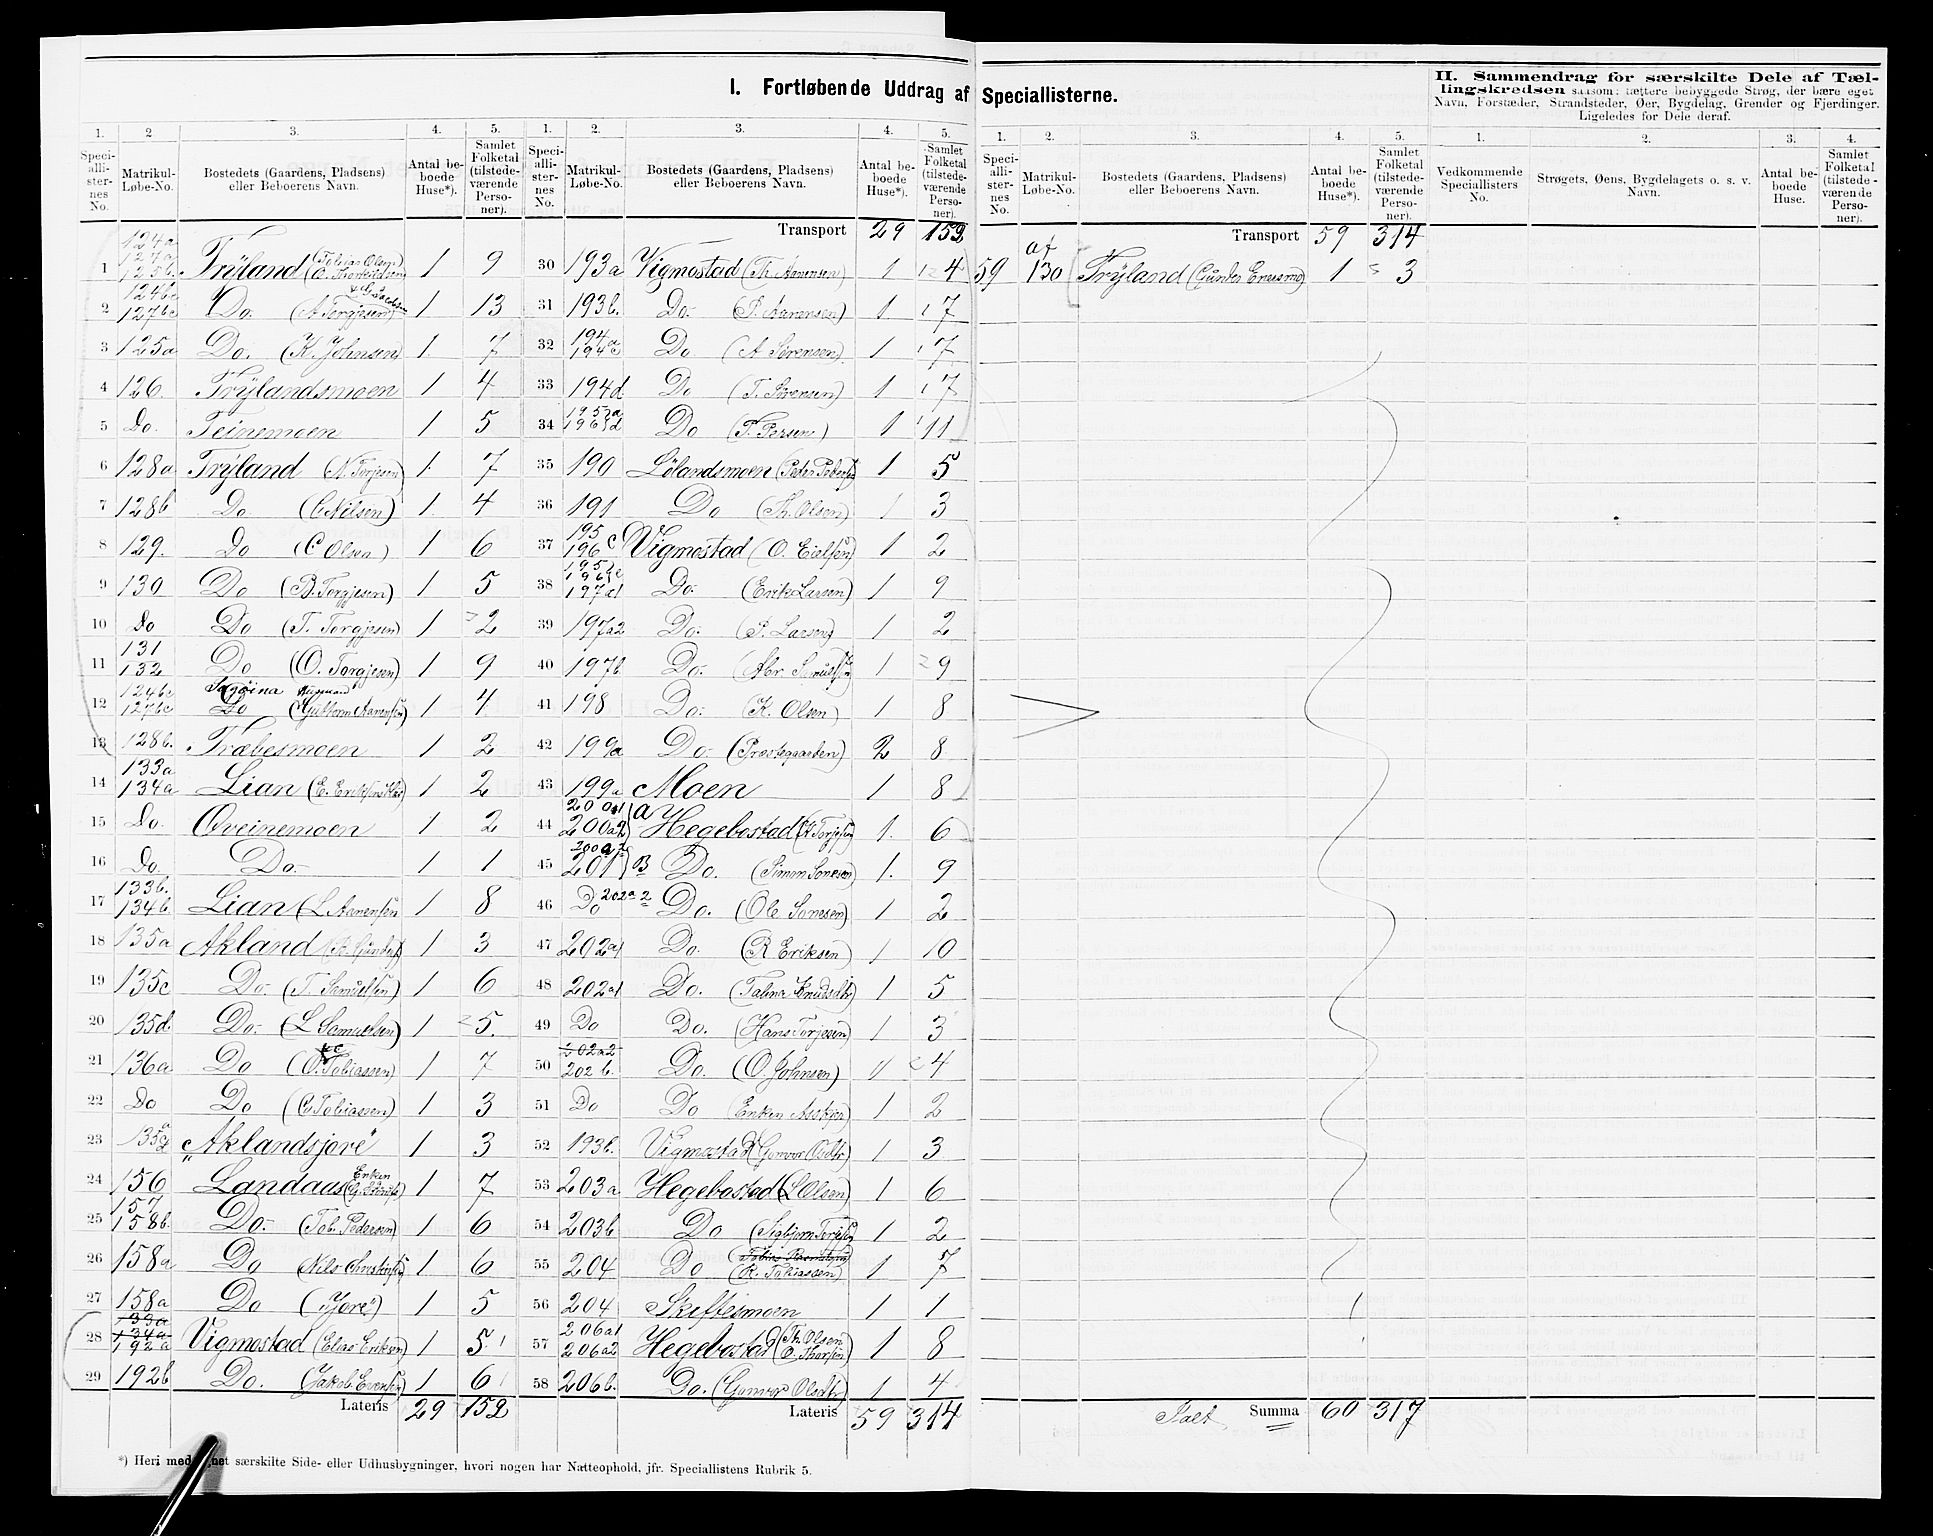 I. Fortløbende Uddrag af Speciallisterne.
II. Sammendrag for særskilte Dele af Tællingskredsen saasom: tættere bebyggede Strøg, der bære eget
Navn, Forstæder, Strandsteder, Øer, Bygdelag, Grender og Fjerdinger.
Ligeledes for Dele deraf.
1. 2. 3. 4. 5.
Specialli-sternes No. Matrikul-Løbe-No. Bostedets (Gaardens, Pladsens) eller Beboerens Navn. Antal beboede Huse*). Samlet Folketal (tilstedeværende Personer).
1 124a 127a 125b. Trÿland (Tobias Olsen) 1 9
2 124bc 127bc Do. (A Torgjesen) 1 13
3 125a Do. (K. Johnsen) 1. 7
4 126. Trÿlandsmoen 1 4
5 Do. Teinemoen 1 5
6 128a Trÿland (N. Torjesen) 1. 7
7 128b Do (C Nilsen) 1. 4
8 129. Do (C Olsen) 1 6
9 130 Do (B. Torgjesen) 1 5
10 Do Do (T. Torgjesen) 1 2
11 131 132 Do (O. Torgjesen) 1 9
12 124bc 127bc Do (Guttorm Aanensen) 1 4
13 128b. Træbesmoen 1 2
14 133a 134a Lian 1 2
15 Do. Qveinemoen 1 2
16 Do. Do. 1 1
17 133b. 134b. Lian (L Aanensen 1 8
18 135a Akland 1 3
19 135c Do. (T. Samuelsen) 1 6
20 135d. Do. (L Samuelsen) 1 5.
21 136a Do (O. Tobiassen) 1 7
22 Do Do (C Tobiassen) 1 3
23 "Aklandsjore" 1 3
24 156 Landaas (Enken 1 7
25 157 158b. Do. (Tob. Pedersen) 1 6
26 158a Do (Nils Christensen 1 6
27 158a Do ("Jore") 1 5
28 133a 134a 192a Vigmostad (Elias Eriksen) 1 5
29 192b Do. (Jakob Evensen) 1 6
Lateris 29 152
1. 2. 3. 4. 5.
Specialli-sternes No. Matrikul-Løbe-No. Bostedets (Gaardens, Pladsens) eller Beboerens Navn. Antal beboede Huse*). Samlet Folketal (tilstedeværende Personer).
Transport 29 152
30 193a Vigmostad (Th. Aanensen) 1 4
31 193b. Do. (P. Aanensen) 1. 7
32 194a 194c Do (A Sørensen) 1 7
33 194d Do (T. Sørensen) 1 7
34 Do (T. Persen) 1 11
35 190 Lølandsmoen (Peder Pedersen 1 5
36 191 Do (Th. Olsen) 1 3
37 195 196 c Vigmostad (O. Eielsen) 1 2
38 Do. (Erik Larsen) 1 9
39 197a2 Do. (P. Larsen) 1 2
40 197b Do. (Abr. Samuelsen) 1 9
41 198 Do. (K. Olsen) 1 8
42 199a Do. (Præstegaarden) 2 8
43 199a Moen 1 8
44 200a1 200a2 a Hegebostad (K Torjesen 1. 6
45 200a2 201 B Do. (Simon Sonesen) 1. 9
46 Do 202a2 Do. (Ole Sonesen) 1 2
47 202a1 Do. (R Eriksen) 1 10
48 202a1 Do. (Talina Knudsdtr) 1 5
49 Do Do. (Hans Torjesen) 1 3
50 202a2 202b. Do. (O. Johnsen) 1 4
51 Do Do (Enken 1 2
52 193b. Vigmostad (Gunvor 1 3
53 203a Hegebostad (L Olsen) 1 6
54 203b Do (Sigbjørn Torjesen 1 2
55 204 Do (K. Tobiassen) 1 7
56 204 Skiftesmoen 1 1
57 206a1 206a2 Hegebostad (Th. Olsen 1 8
58 206b. Do. (Gunvor Olsdtr) 1 4
Lateris 59 314
1. 2. 3. 4. 5.
Specialli-sternes No. Matrikul-Løbe-No. Bostedets (Gaardens, Pladsens) eller Beboerens Navn. Antal beboede Huse*). Samlet Folketal (tilstedeværende Personer).
Transport 59 314
59 af 130 Trÿland 1 3
Ialt Summa 60 317
1. 2. 3. 4.
Vedkommende Speciallisters No. Strøgets, Øens, Bygdelagets o. s. v. Navn. Antal beboede Huse. Samlet Folketal (tilstedeværende Personer).
*) Heri særskilte Side- eller Udhusbygninger, hvori nogen har Natteophold, jfr. Speciallistens Rubrik 5.